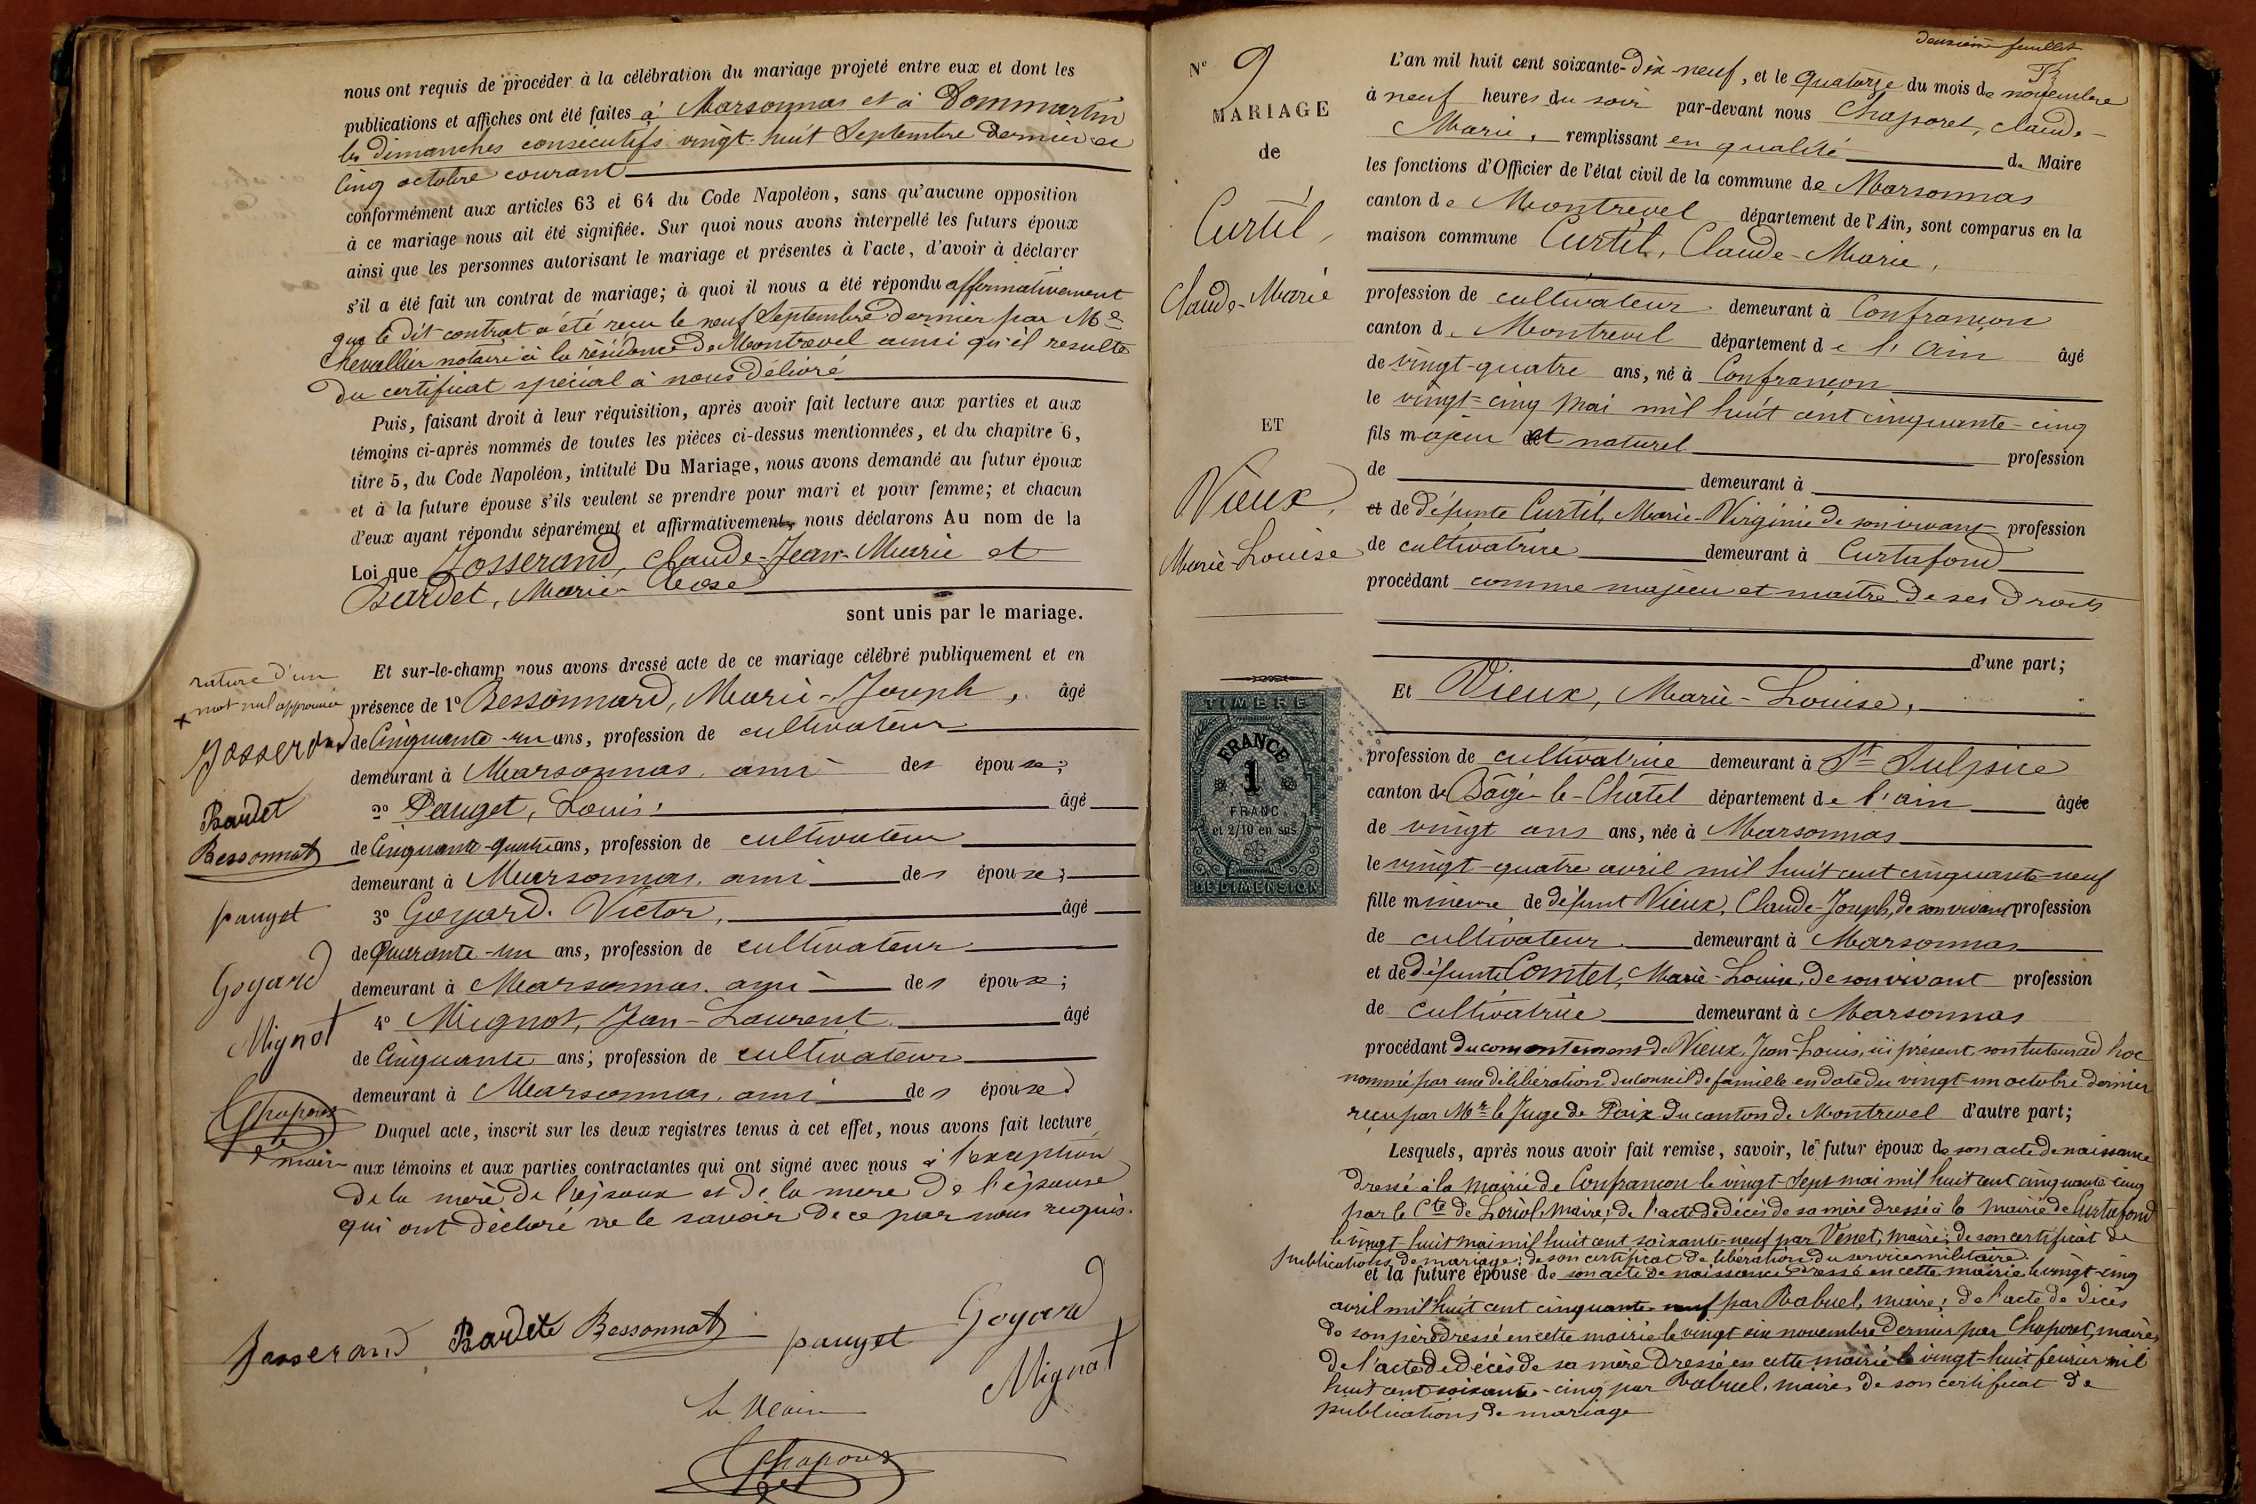 nous ont requis de procéder à la célébration du mariage projeté entre eux et dont les
publications et affiches ont été faites à Marsonnas et à Dommartin
les dimanches consécutifs vingt-huit Septembre dernier et
cinq octobre courant
conformément aux articles 63 et 64 du Code Napoléon, sans qu'aucune opposition
à ce mariage nous ait été signifiée. Sur quoi nous avons interpellé les futurs époux
ainsi que les personnes autorisant le mariage et présentes à l'acte, d'avoir à déclarer
s'il a été fait un contrat de mariage; à quoi il nous a été répondu affirmativement
que le dit contrat a été reçu le neuf Septembre dernier par Me
Chevallier notaire à la résidence de Montrevel ainsi qu'il resulte
du certificat spécial à nous délivré
Puis, faisant droit à leur réquisition, après avoir fait lecture aux parties et aux
témoins ci-après nommés de toutes les pièces ci-dessus mentionnées, et du chapitre 6,
titre 5, du Code Napoléon, intitulé Du Mariage, nous avons demandé au futur époux
et à la future épouse s'ils veulent se prendre pour mari et pour femme; et chacun
d'eux ayant répondu séparément et affirmativement, nous déclarons Au nom de la
Loi que Josserand, Claude-Jean-Marie et
Bardet, Marie-Rose
sont unis par le mariage.
Et sur-le-champ nous avons dressé acte de ce mariage célébré publiquement et en
présence de 1° Bessonnard, Marie-Joseph, âgé
de Cinquante-un ans, profession de cultivateur
demeurant à Marsonnas, ami des époux;
2° Pauget, Louis, âgé
de Cinquante-quatre ans, profession de cultivateur
demeurant à Marsonnas, ami des époux;
3° Goyard, Victor, âgé
de Quarante-un ans, profession de cultivateur
demeurant à Marsonnas, ami des époux;
4° Mignot, Jean-Laurent, âgé
de Cinquante ans; profession de cultivateur
demeurant à Marsonnas, ami des époux
Duquel acte, inscrit sur les deux registres tenus à cet effet, nous avons fait lecture
aux témoins et aux parties contractantes qui ont signé avec nous à l'exception
de la mère de l'époux et de la mere de l'épouse
qui ont déclaré ne le savoir de ce par nous requis.
Josserand Bardet Bessonnat pauget Goyard
Mignot
le Maire
Chaporet
rature d'un
mot nul approuvée
Josserand
Bardet
Bessonnat
pauget
Goyard
Mignot
Chaporet
maire
deuxième feuillet
N° 9
MARIAGE
de
Curtil,
Claude-Marie
ET
Vieux,
Marie-Louise
TIMBRE
FRANCE
1
FRANC
et 2/10 en sus
DE DIMENSION
L'an mil huit cent soixante-dix-neuf, et le quatorze du mois de novembre
à neuf heures du soir par-devant nous Chaporet, Claude-
Marie, remplissant en qualité de Maire
les fonctions d'Officier de l'état civil de la commune de Marsonnas
canton de Montrevel département de l'Ain, sont comparus en la
maison commune Curtil, Claude-Marie,
profession de cultivateur demeurant à Confrançon
canton de Montrevel département de l'ain âgé
de vingt-quatre ans, né à Confrançon
le vingt-cinq mai mil huit cent cinquante-cinq
fils majeur et naturel profession
de demeurant à
et de défunte Curtil, Marie-Virginie de son vivant profession
de cultivatrice demeurant à Curtafond
procédant comme majeur et maître de ses droits
d'une part;
Et Vieux, Marie-Louise,
profession de cultivatrice demeurant à St Sulpice
canton de Bâgé-le-Châtel département de l'ain âgée
de vingt ans ans, née à Marsonnas
le vingt-quatre avril mil huit cent cinquante-neuf
fille mineure de défunt Vieux, Claude-Joseph, de son vivant profession
de cultivateur demeurant à Marsonnas
et de défunte Comtet, Marie-Louise, de son vivant profession
de cultivatrice demeurant à Marsonnas
procédant du consentement de Vieux, Jean-Louis, ici présent, son tuteur ad hoc
nommé par une délibération du conseil de famille en date du vingt-un octobre dernier
reçu par Mr le Juge de Paix du canton de Montrevel d'autre part;
Lesquels, après nous avoir fait remise, savoir, le futur époux de son acte de naissance
dressé à la Mairie de Confrancon le vingt-sept mai mil huit cent cinquante-cinq
par le Cte de Loriol, Maire; de l'acte de décès de sa mère dressé à la Mairie de Curtafond
le vingt-huit mai mil huit cent soixante-neuf par Venet, maire; de son certificat de
publications de mariage; de son certificat de libération du service militaire.
et la future épouse de son acte de naissance dressé en cette mairie le vingt-cinq
avril mil huit cent cinquante-neuf par Rabuel, maire; de l'acte de décès
de son père dressé en cette mairie le vingt six novembre dernier par Chaporet, maire,
de l'acte de décès de sa mère dressé en cette mairie le vingt-huit fevrier mil
huit cent soixante-cinq par Rabuel, maire, de son certificat de
publications de mariage